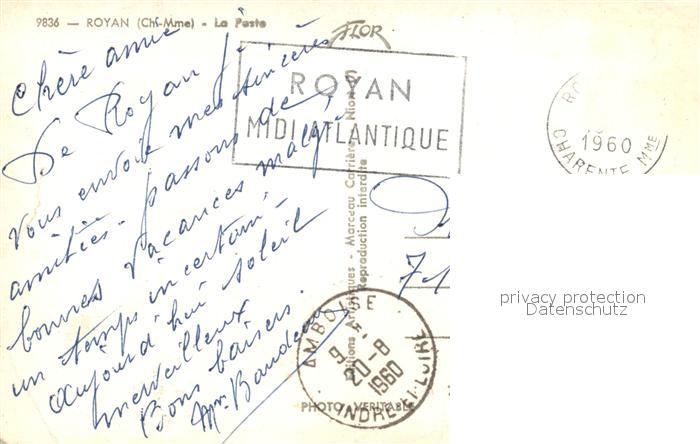 9836 — ROYAN (Ch-Mme) - La Poste
FLOR
ROYAN
MIDI ATLANTIQUE
1960
CHARENTE MME
Chère amie
De Royan je
vous envoie mes sincères
amitiés. passons de
bonnes vacances malgré
un temps incertain,
aujourd'hui soleil
merveilleux
Bons baisers.
Marceau Carrière
Reproduction interdite
AMBOISE
20-8
1960
INDRE-ET-LOIRE
PHOTO VERITABLE
privacy protection
Datenschutz